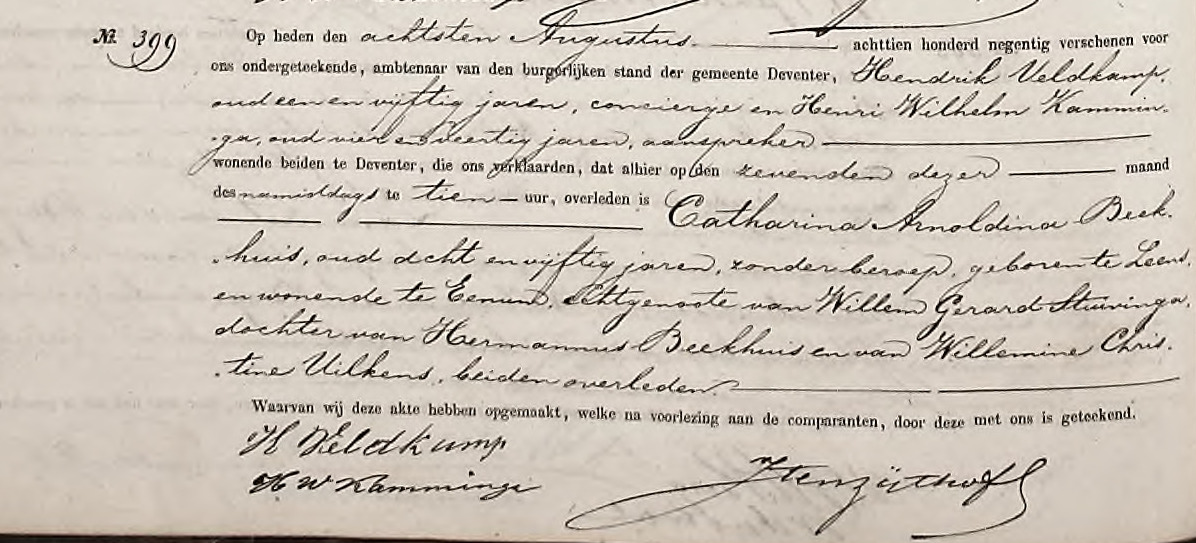 No. 399 Op heden den achtsten Augustus achttien honderd negentig verschenen voor
ons ondergeteekende, ambtenaar van den burgerlijken stand der gemeente Deventer, Hendrik Veldkamp,
oud een en vijftig jaren, concierge en Henri Wilhelm Kammin-
ga, oud vier en veertig jaren, aanspreker
wonende beiden te Deventer, die ons verklaarden, dat alhier op den zevenden dezer maand
des namiddags te tien uur, overleden is Catharina Arnoldina Beek-
huis, oud acht en vijftig jaren, zonder beroep, geboren te Leens,
en wonende te Eenum, echtgenoote van Willem Gerard Stuivinga,
dochter van Hermannus Beekhuis en van Willemine Chris-
tine Uilkens, beiden overleden.
Waarvan wij deze akte hebben opgemaakt, welke na voorlezing aan de comparanten, door deze met ons is geteekend.
H Veldkamp
H W Kamminga